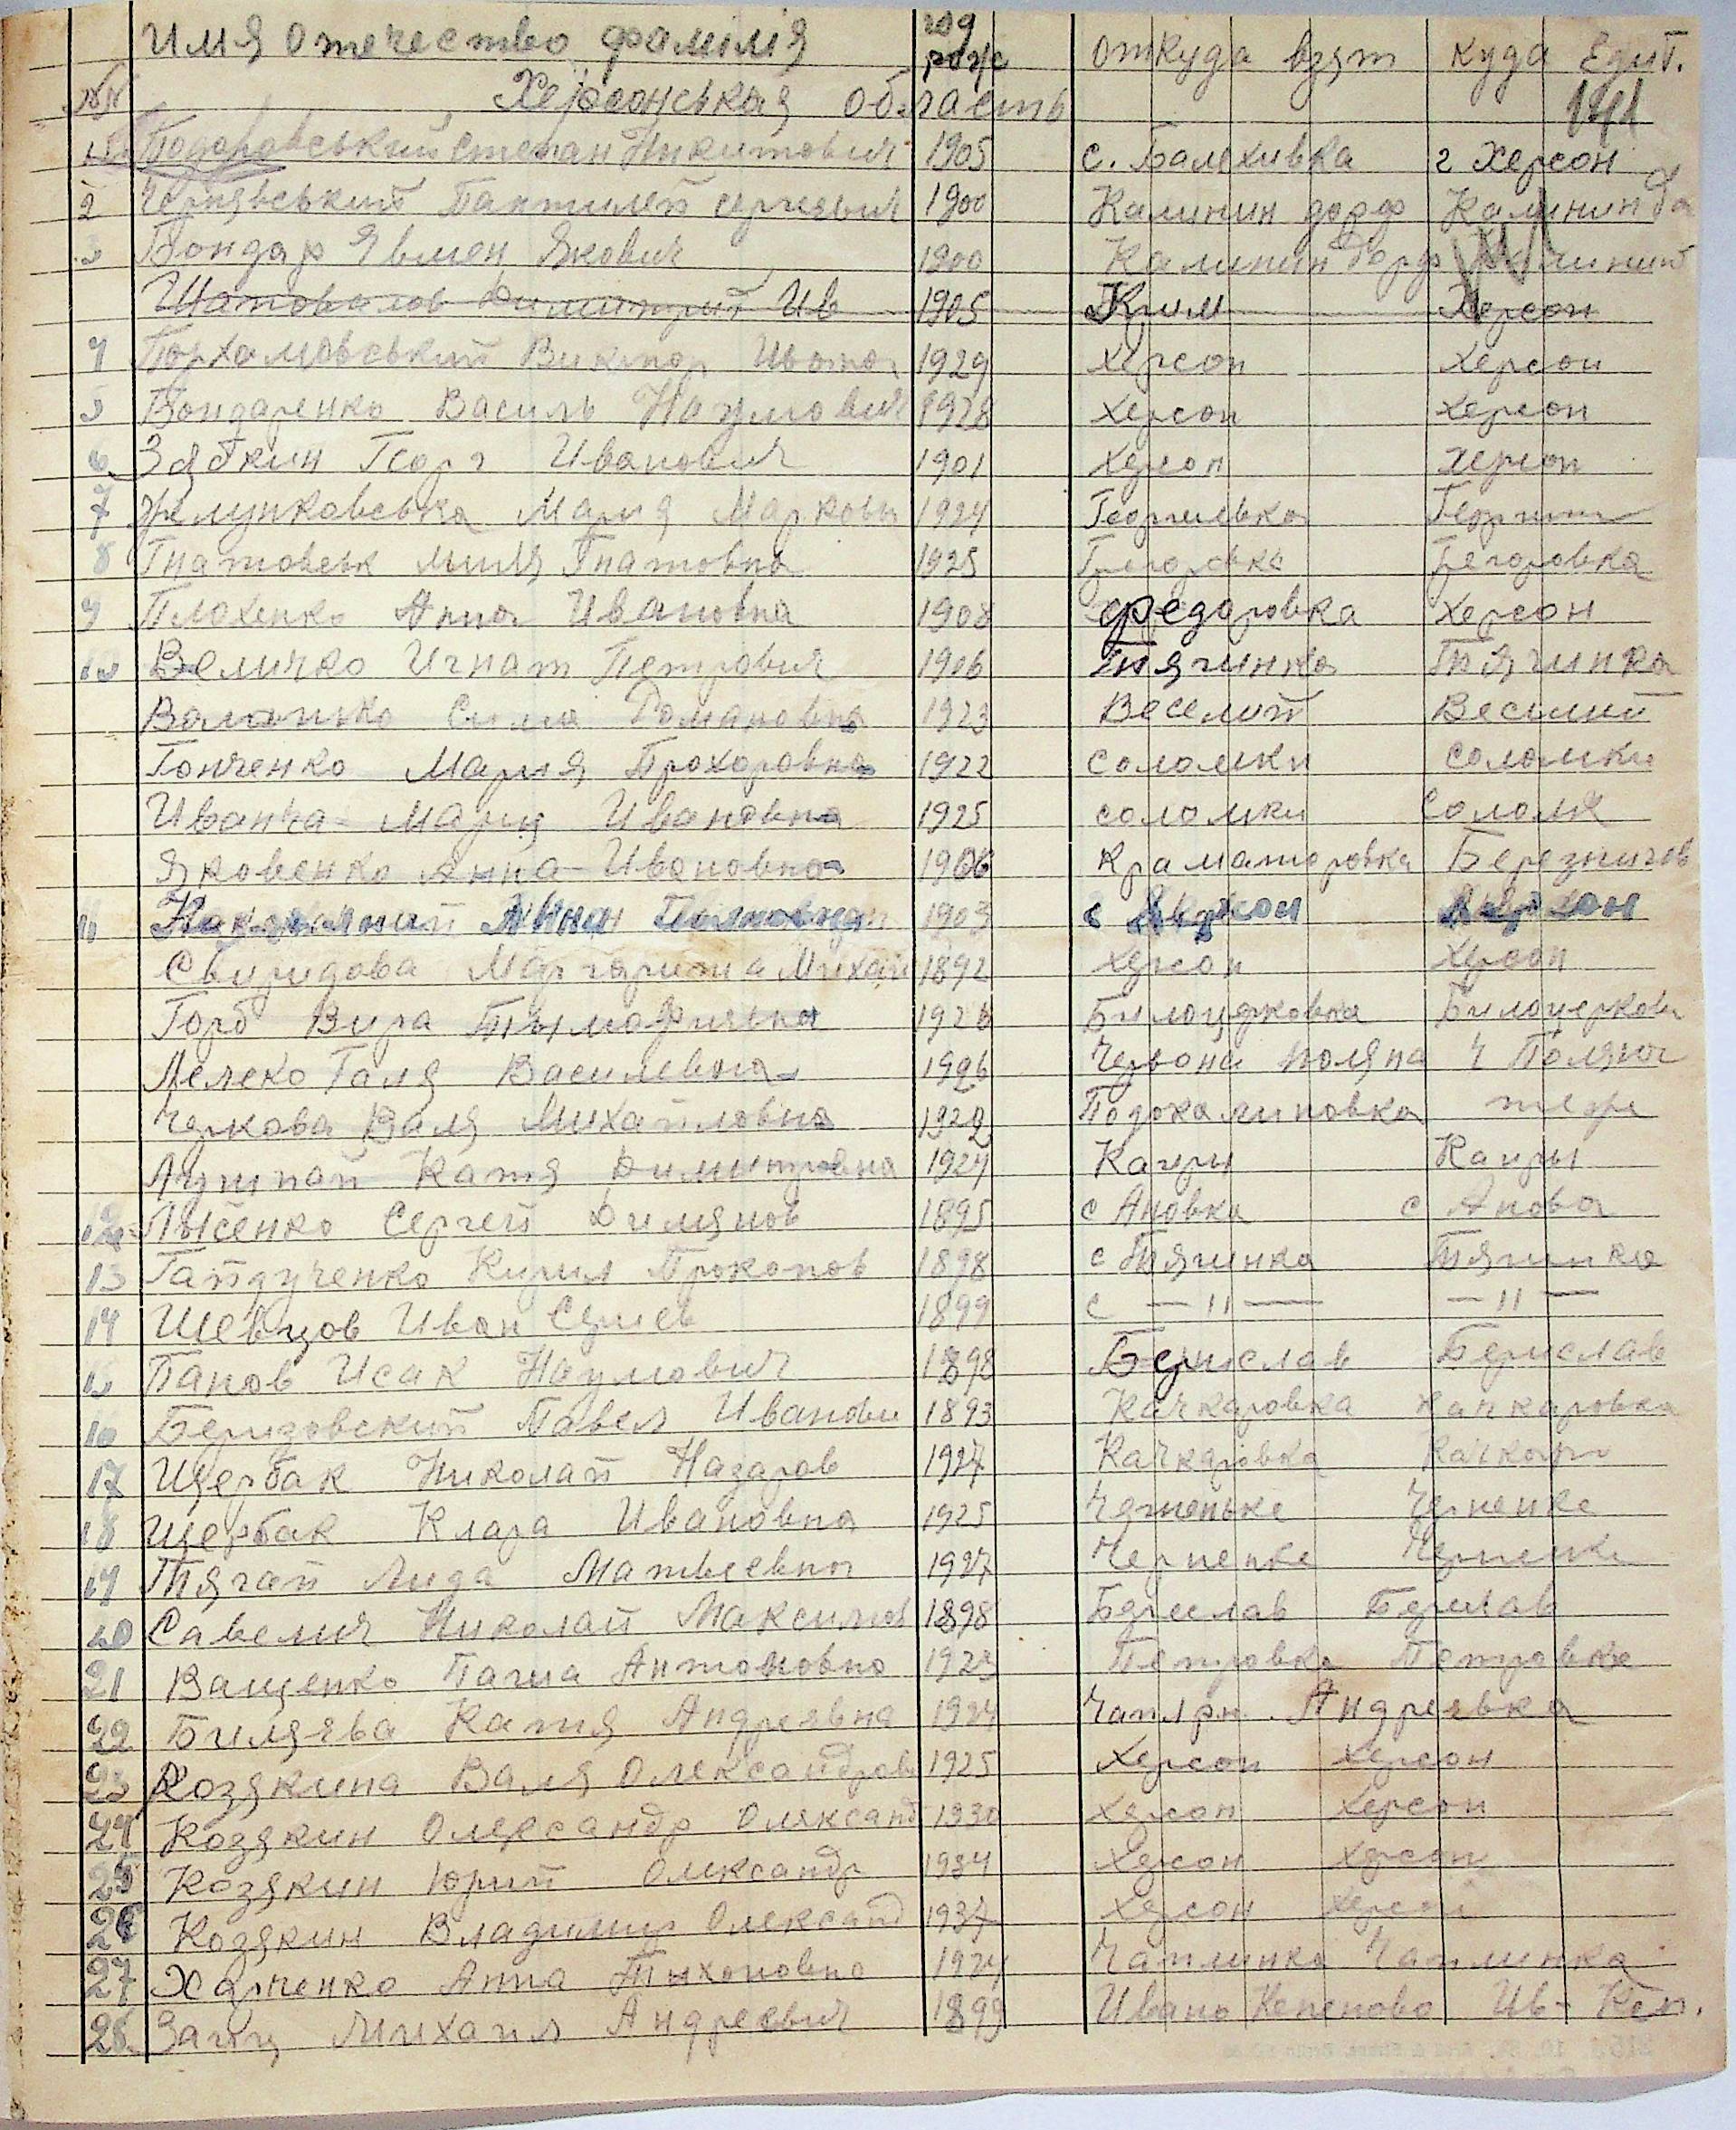 имя отечество фамилия год рожс откуда взят куда Едит.
№№ Херсонськая область 141
Степан Никитович 1905 с. Балехивка г Херсон
2 Чернявський Пантилей сергеевич 1900 Калинин дорф Калинин
3 Бондар Явмен Якович 1900 Калинин дорф
Шаповалов Димитрий Ив 1905 Крим Херсон
4 Виктор 1929 Херсон Херсон
5 Бондаренко Василь Наумович 1928 Херсон Херсон
6 Зябкин Георг Иванович 1901 Херсон Херсон
7 Мария Марковн 1924 Георгиевка
8 Гнатовськ Миля Гнатовна 1925 Грегоровка
9 Плохенко Анна Ивановна 1908 Федоровка Херсон
10 Величко Игнат Петрович 1906 Тягинка Тягинка
Романовна 1923 Веселий Веселий
Гонченко Мария Прохоровна 1922 соломки соломки
Иванча Мария Ивановна 1925 соломки Соломк
Яковенко Анна Ивановна 1906 Краматоровка
11 1903 с Херсон Херсон
Свиридова Маргарита Михай 1892 Херсон Херсон
Горб Вира Тымофиявна 1926 Билоцерковка Билоцерковк
Лелеко Галя Василевна 1926 Червона поляна Ч Поляна
Черкова Валя Михайловна 1922 Подокалиновка
Лушпай Катя Димитровна 1924 Каиры Каиры
12 Лысенко Сергей Димянов 1895 с Ановка с Анова
13 Гайдученко Кирил Прокопов 1898 с Тягинка Тягинка
14 Шевцов Иван 1899 с —"— —"—
15 Панов Исак Наумович 1898 Берислав Берислав
16 Беридовский Павел Иванови 1893 Качкаровка Качкаровка
17 Щербак Николай Назаров 1927 Качкаровка
18 Щербак Клара Ивановна 1925 Черненьке Черненке
19 Тягай Лида Матвеевна 1927 Черненьке Черненке
20 Савелич Николай Максимов 1898 Береслав Берислав
21 Ващенко Паша Антоновно 1923 Петровка Петровка
22 Билявва Катя Андреявна 1924 Чапл рн. Андреявка
23 Козякина Валя Олександров 1925 Херсон Херсон
24 Козякин Олександр Оляксанд 1930 Херсон Херсон
25 Козякин Юрий Олександр 1934 Херсон Херсон
26 Козякин Владимир Олександ 1937 Херсон Херсон
27 Харченко Анна Тихоновна 1924 Чаплинка Чаплинка
28 Заяц Михаил Андреевич 1899 Ивано Кепеново Ив- Кеп.